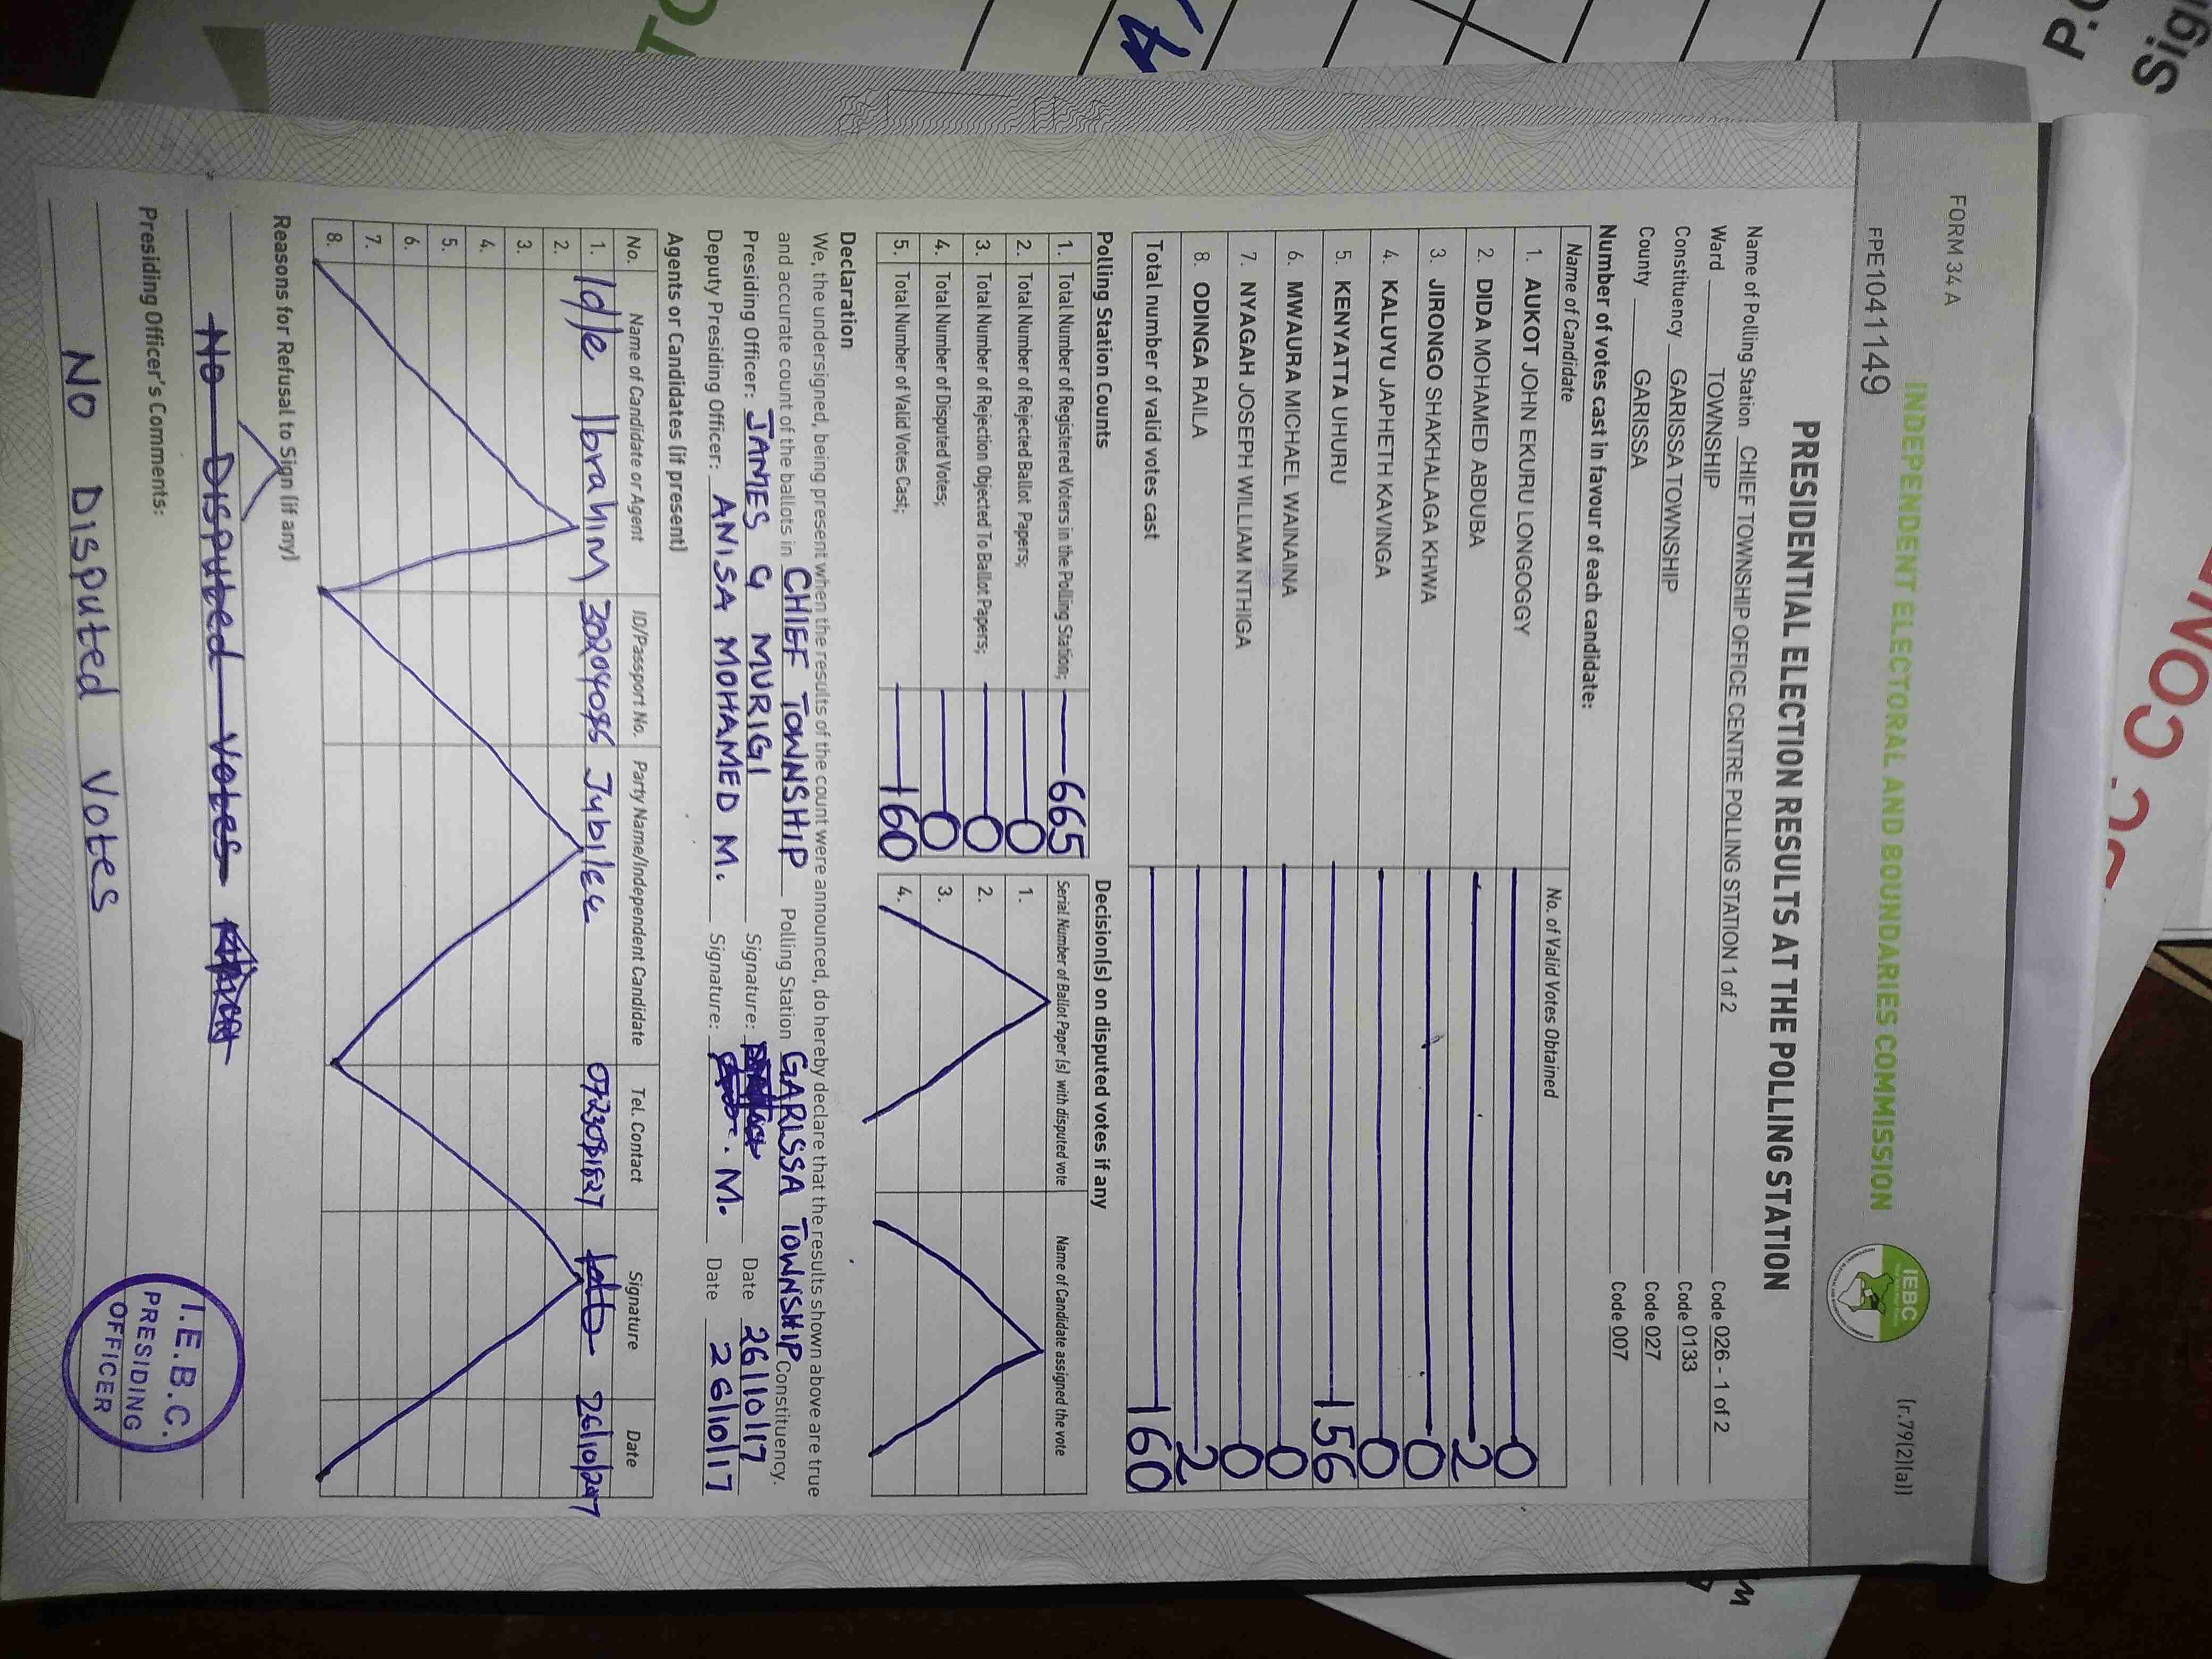 FORM 34 A
(r.79(2)(a))
INDEPENDENT ELECTORAL AND BOUNDARIES COMMISSION
IEBC
FPE1041149
PRESIDENTIAL ELECTION RESULTS AT THE POLLING STATION
Name of Polling Station CHIEF TOWNSHIP OFFICE CENTRE POLLING STATION 1 of 2 Code 026 - 1 of 2
Ward TOWNSHIP Code 0133
Constituency GARISSA TOWNSHIP Code 027
County GARISSA Code 007
Number of votes cast in favour of each candidate:
Name of Candidate No. of Valid Votes Obtained
1. AUKOT JOHN EKURU LONGOGGY 0
2. DIDA MOHAMED ABDUBA 2
3. JIRONGO SHAKHALAGA KHWA 0
4. KALUYU JAPHETH KAVINGA 0
5. KENYATTA UHURU 156
6. MWAURA MICHAEL WAINAINA 0
7. NYAGAH JOSEPH WILLIAM NTHIGA 0
8. ODINGA RAILA 2
Total number of valid votes cast 160
Polling Station Counts
1. Total Number of Registered Voters in the Polling Station; 665
2. Total Number of Rejected Ballot Papers; 0
3. Total Number of Rejection Objected To Ballot Papers; 0
4. Total Number of Disputed Votes; 0
5. Total Number of Valid Votes Cast; 160
Decision(s) on disputed votes if any
Serial Number of Ballot Paper (s) with disputed vote Name of Candidate assigned the vote
1.
2.
3.
4.
Declaration
We, the undersigned, being present when the results of the count were announced, do hereby declare that the results shown above are true
and accurate count of the ballots in CHIEF TOWNSHIP Polling Station GARISSA TOWNSHIP Constituency.
Presiding Officer: JAMES G MURIGI Signature: Date 26/10/17
Deputy Presiding Officer: ANISA MOHAMED M. Signature: M. Date 26/10/17
Agents or Candidates (if present)
No. Name of Candidate or Agent ID/Passport No. Party Name/Independent Candidate Tel. Contact Signature Date
1. Idle Ibrahim Jubilee 26/10/2017
2.
3.
4.
5.
6.
7.
8.
Reasons for Refusal to Sign (if any)
No Disputed Votes
Presiding Officer's Comments:
No Disputed Votes
I.E.B.C.
PRESIDING
OFFICER